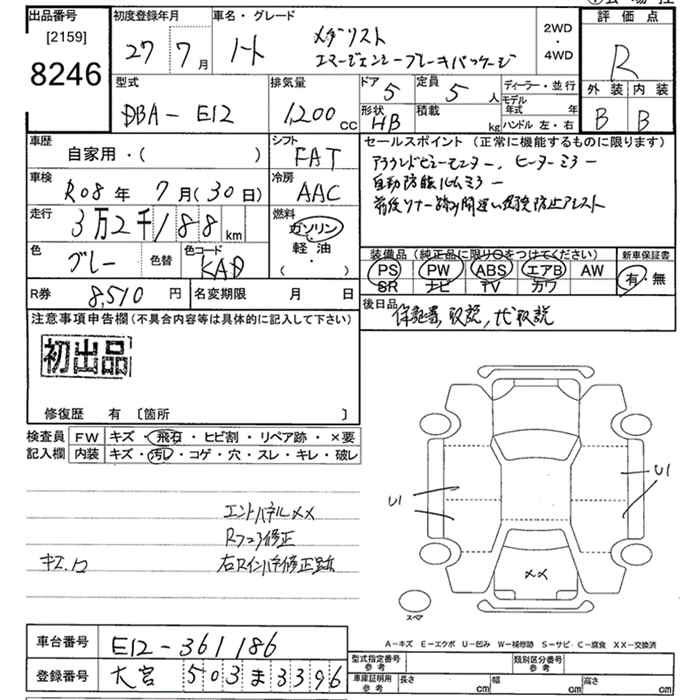 出品番号 初度登録年月 車名・グレード 評価点
[2159] 8246
27年 7月 ノート メダリスト
エマージェンシーブレーキパッケージ
2WD・4WD
R
型式 排気量 ドア 定員 ディーラー・並行 外装 内装
DBA-E12 1,200cc 5 5人 モデル年式 年 B B
形状 HB 積載 kg ハンドル 左・右
車歴 自家用・( ) シフト FAT
セールスポイント(正常に機能するものに限ります)
アラウンドビューモニター, ヒーターミラー
自動防眩ルームミラー
車検 R08年 7月(30日) 冷房 AAC
走行 3万2千188km 燃料 ガソリン 軽油 ・( )
色 グレー 色替 色コード KAD
装備品(純正品に限り○をつけてください) 新車保証書
PS PW ABS エアB AW 有・無
SR ナビ TV カワ
R券 8,510円 名変期限 月 日
後日品 保証書, 取説,
注意事項申告欄(不具合内容等は具体的に記入して下さい)
初出品
修復歴 有 [箇所 ]
検査員 FW キズ・飛石・ヒビ割・リペア跡・×要
記入欄 内装 キズ・汚レ・コゲ・穴・スレ・キレ・破レ
U1
U1
エンドパネルXX
Rフロア修正
キズ.凹 右Rインナー修正跡
XX
スペア
A-キズ E-エクボ U-凹み W-補修跡 S-サビ C-腐食 XX-交換済
車台番号 E12-361186
型式指定番号 参考 類別区分番号 参考
登録番号 大宮 503 ま 3396
車庫証明用 参考 長さ cm 幅 cm 高さ cm